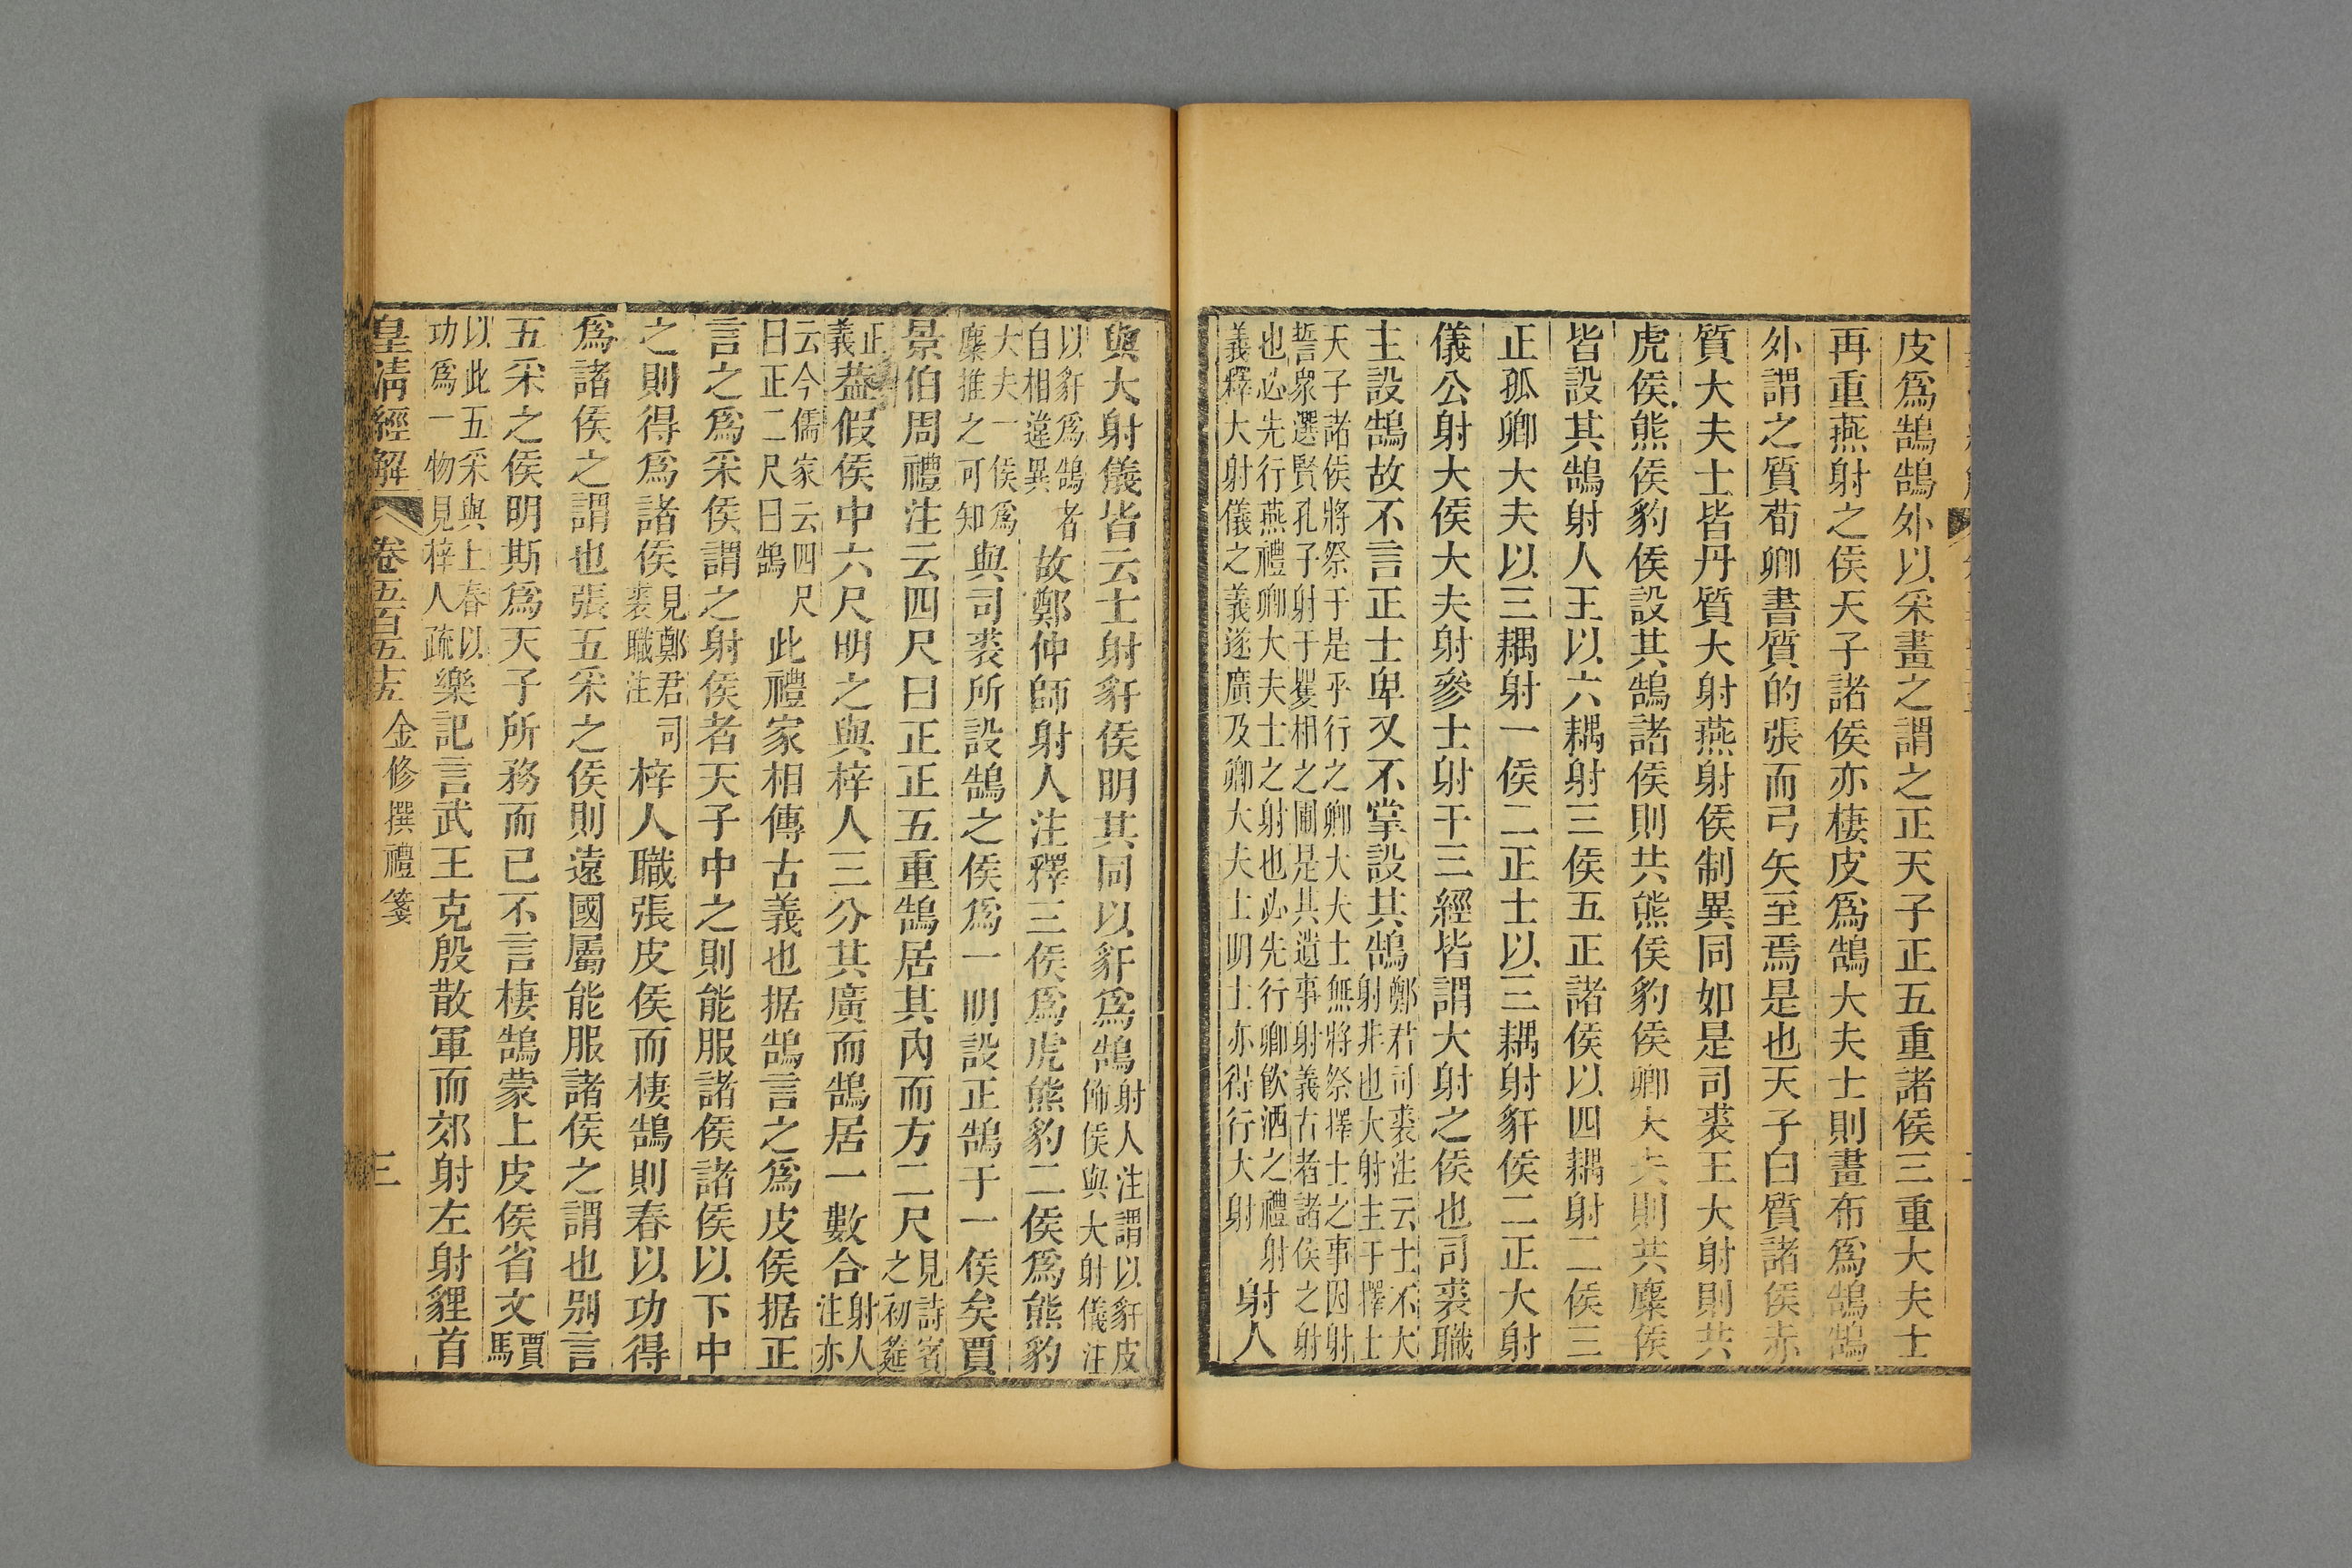 皮爲鵠鵠外以采畫之謂之正天子正五重諸侯三重大夫士
再重燕射之侯天子諸侯亦棲皮爲鵠大夫士則畫布爲鵠鵠
外謂之質荀卿書質的張而弓矢至焉是也天子白質諸侯赤
質大夫士皆丹質大射燕射侯制異同如是司裘王大射則共
虎侯熊侯豹侯設其鵠諸侯則共熊侯豹侯卿大夫則共麋侯
皆設其鵠射人王以六耦射三侯五正諸侯以四耦射二侯三
正孤卿大夫以三耦射一侯二正士以三耦射豻侯二正大射
儀公射大侯大夫射參士射干三經皆謂大射之侯也司裘職
主設鵠故不言正士卑又不掌設其鵠
鄭君司裘注云士不大
射非也大射主于擇士
天子諸侯將祭于是乎行之卿大夫士無將祭擇士之事因射
誓衆選賢孔子射于矍相之圃是其遺事射義古者諸侯之射
也必先行燕禮卿大夫士之射也必先行卿飲酒之禮射
義釋大射儀之義遂廣及卿大夫士明士亦得行大射
射人
與大射儀皆云士射豻侯明其同以豻爲鵠
射人注謂以豻皮
飾侯與大射儀注
以豻爲鵠者
自相違異
故鄭仲師射人注釋三侯爲虎熊豹二侯爲熊豹
大夫一侯爲
麋推之可知
與司裘所設鵠之侯爲一明設正鵠于一侯矣賈
景伯周禮注云四尺曰正正五重鵠居其內而方二尺
見詩賓
之初筵
正
義
葢假侯中六尺明之與梓人三分其廣而鵠居一數合
射人
注亦
云今儒家云四尺
曰正二尺曰鵠
此禮家相傳古義也据鵠言之爲皮侯据正
言之爲采侯謂之射侯者天子中之則能服諸侯諸侯以下中
之則得爲諸侯
見鄭君司
裘職注
梓人職張皮侯而棲鵠則春以功得
爲諸侯之謂也張五采之侯則遠國屬能服諸侯之謂也別言
五采之侯明斯爲天子所務而已不言棲鵠蒙上皮侯省文
賈
馬
以此五采與上春以
功爲一物見梓人疏
樂記言武王克殷散軍而郊射左射貍首
皇淸經解
卷五百五十五
金修撰禮箋
三